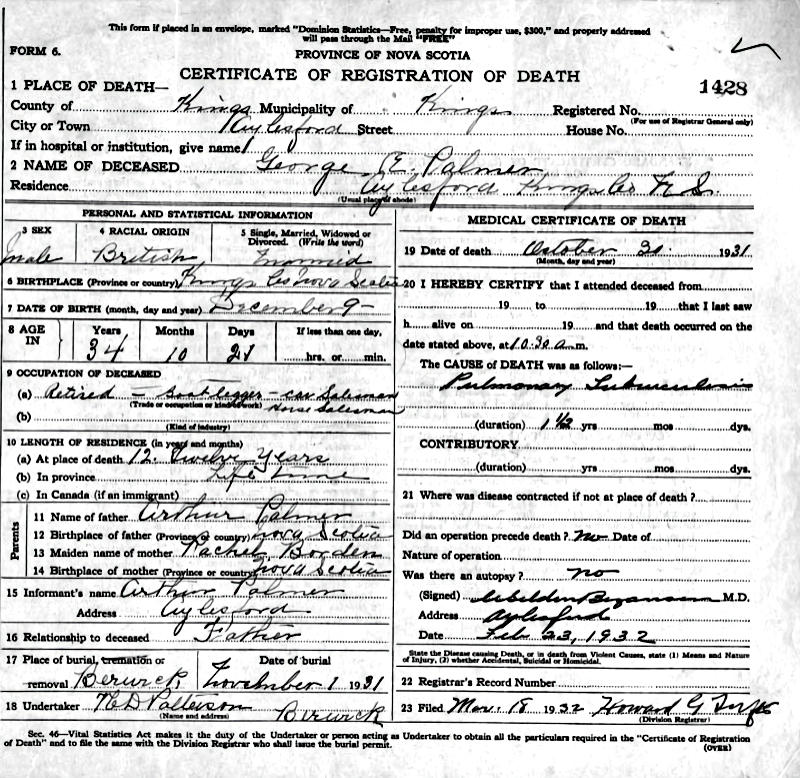 This form if placed in an envelope, marked "Dominion Statistics—Free, penalty for improper use, $300," and properly addressed
will pass through the Mail "FREE"
FORM 6.
PROVINCE OF NOVA SCOTIA
CERTIFICATE OF REGISTRATION OF DEATH
1428
1 PLACE OF DEATH—
County of Kings Municipality of Kings Registered No.
(For use of Registrar General only)
City or Town Aylesford Street House No.
If in hospital or institution, give name
2 NAME OF DECEASED George E. Palmer
Residence Aylesford Kings Co. N. S.
(Usual place of abode)
PERSONAL AND STATISTICAL INFORMATION
3 SEX 4 RACIAL ORIGIN 5 Single, Married, Widowed or
Divorced. (Write the word)
male British married
6 BIRTHPLACE (Province or country) Kings Co Nova Scotia
7 DATE OF BIRTH (month, day and year) December 9-
8 AGE IN Years Months Days If less than one day,
34 10 21 hrs. or min.
9 OCCUPATION OF DECEASED
(a) Retired — bootlegger - car salesman
(Trade or occupation or kind of work) Horse salesman
(b)
(Kind of industry)
10 LENGTH OF RESIDENCE (in years and months)
(a) At place of death 12. Twelve Years
(b) In province Life time
(c) In Canada (if an immigrant)
Parents
11 Name of father Arthur Palmer
12 Birthplace of father (Province or country) Nova Scotia
13 Maiden name of mother Rachel Borden
14 Birthplace of mother (Province or country) Nova Scotia
15 Informant's name Arthur Palmer
Address Aylesford
16 Relationship to deceased Father
17 Place of burial, cremation or Date of burial
removal Berwick, November 1 1931
18 Undertaker Patterson Berwick
(Name and address)
MEDICAL CERTIFICATE OF DEATH
19 Date of death October 30 1931
(Month, day and year)
20 I HEREBY CERTIFY that I attended deceased from
19 to 19 that I last saw
h alive on 19 and that death occurred on the
date stated above, at 10.30 a.m.
The CAUSE of DEATH was as follows:—
Pulmonary Tuberculosis
(duration) 1½ yrs mos dys.
CONTRIBUTORY
(duration) yrs. mos dys.
21 Where was disease contracted if not at place of death?
Did an operation precede death? no Date of
Nature of operation
Was there an autopsy? no
(Signed) M.D.
Address Aylesford
Date Feb 23, 1932
State the Disease causing Death, or in death from Violent Causes, state (1) Means and Nature
of Injury, (2) whether Accidental, Suicidal or Homicidal.
22 Registrar's Record Number
23 Filed Mar. 18 1932 Howard G
(Division Registrar)
Sec. 46—Vital Statistics Act makes it the duty of the Undertaker or person acting as Undertaker to obtain all the particulars required in the "Certificate of Registration
of Death" and to file the same with the Division Registrar who shall issue the burial permit.
(OVER)